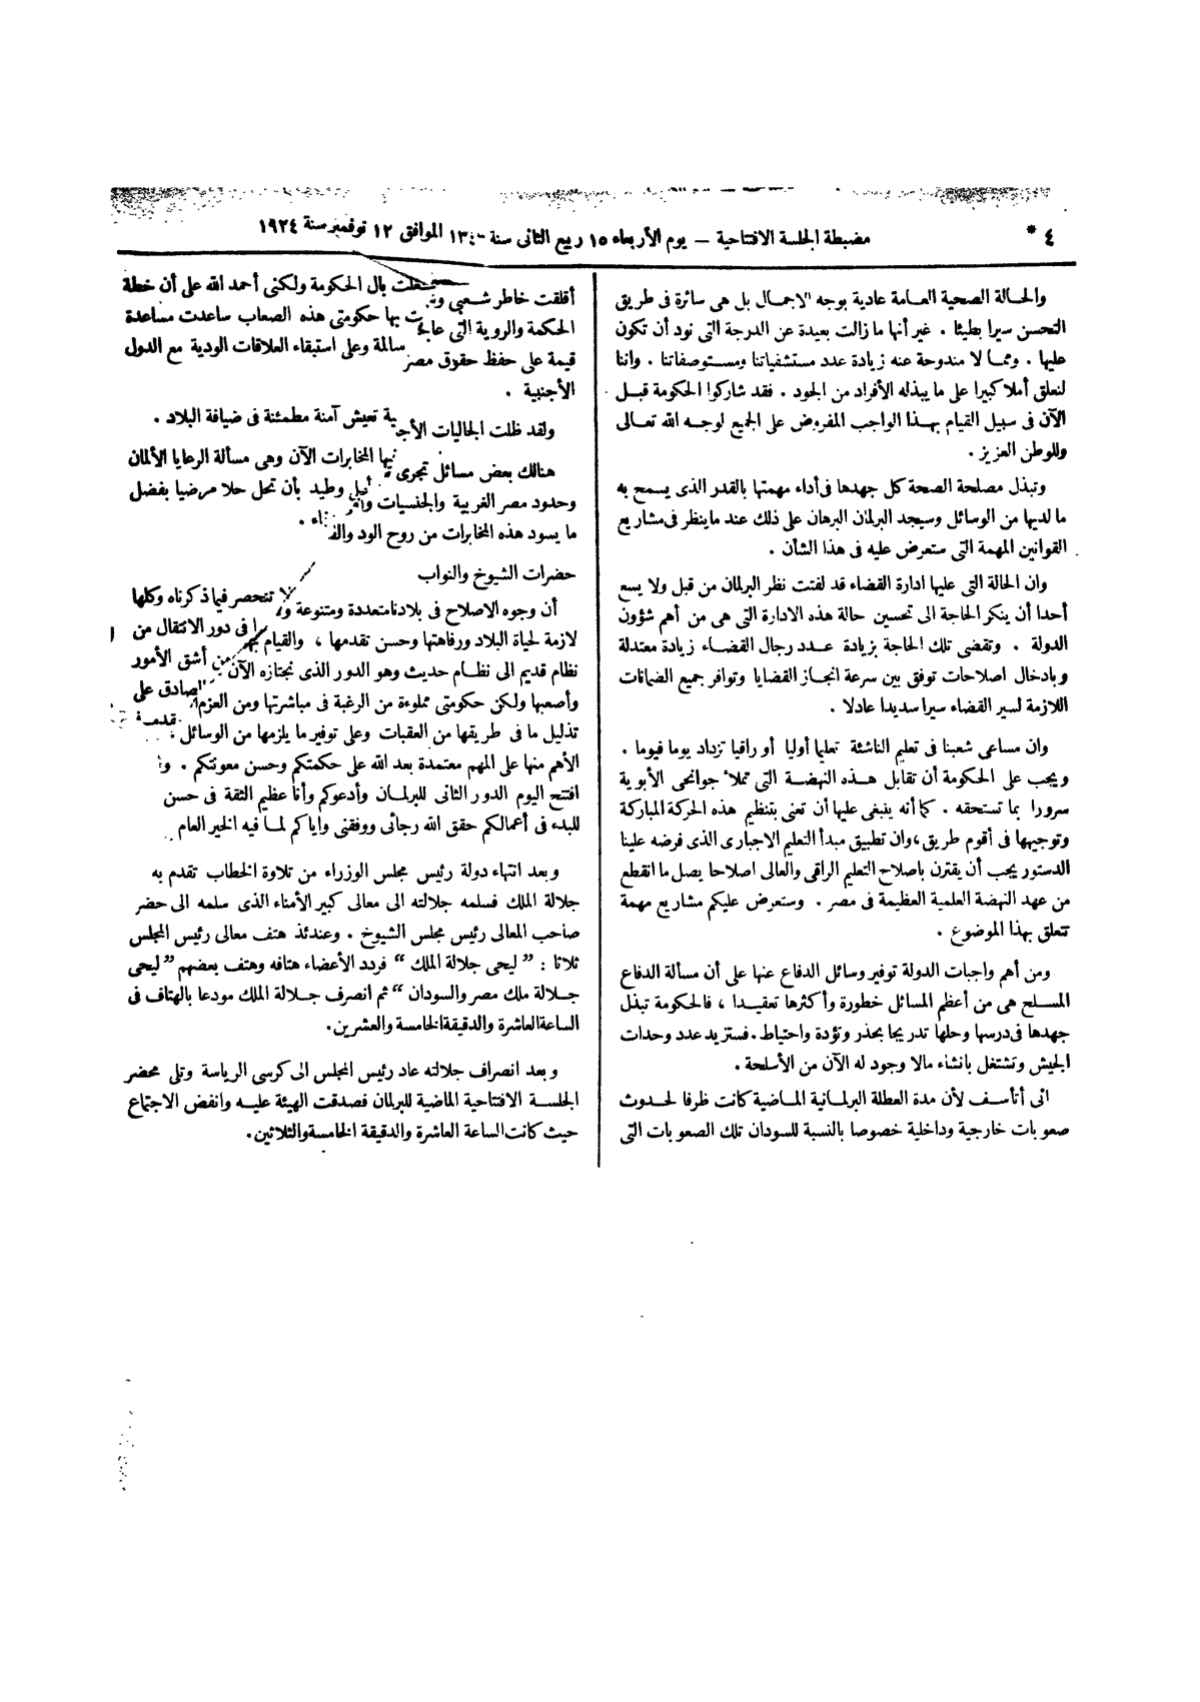 ٤ *
مضبطة الجلسة الافتتاحية — يوم الأربعاء ١٥ ربيع الثانى سنة ١٣٤٠ الموافق ١٢ نوفمبر سنة ١٩٢٤
والحالة الصحية العامة عادية بوجه الاجمال بل هى سائرة فى طريق
التحسن سيرا بطيئا . غير أنها ما زالت بعيدة عن الدرجة التى نود أن تكون
عليها . ومما لا مندوحة عنه زيادة عدد مستشفياتنا ومستوصفاتنا . واننا
لنعلق أملا كبيرا على ما يبذله الأفراد من الجود . فقد شاركوا الحكومة قبل
الآن فى سبيل القيام بهذا الواجب المفروض على الجميع لوجه الله تعالى
وللوطن العزيز .
وتبذل مصلحة الصحة كل جهدها فى أداء مهمتها بالقدر الذى يسمح به
ما لديها من الوسائل وسيجد البرلمان البرهان على ذلك عند ما ينظر فى مشاريع
القوانين المهمة التى ستعرض عليه فى هذا الشأن .
وان الحالة التى عليها ادارة القضاء قد لفتت نظر البرلمان من قبل ولا يسع
أحدا أن ينكر الحاجة الى تحسين حالة هذه الادارة التى هى من أهم شؤون
الدولة . وتقضى تلك الحاجة بزيادة عدد رجال القضاء زيادة معتدلة
وبادخال اصلاحات توفق بين سرعة انجاز القضايا وتوافر جميع الضمانات
اللازمة لسير القضاء سيرا سديدا عادلا .
وان مساعى شعبنا فى تعليم الناشئة تعليما أوليا أو راقيا تزداد يوما فيوما .
ويجب على الحكومة أن تقابل هذه النهضة التى تملأ جوانحى الأبوية
سرورا بما تستحقه . كما أنه ينبغى عليها أن تعنى بتنظيم هذه الحركة المباركة
وتوجيهها فى أقوم طريق، وان تطبيق مبدأ التعليم الاجبارى الذى فرضه علينا
الدستور يجب أن يقترن باصلاح التعليم الراقى والعالى اصلاحا يصل ما انقطع
من عهد النهضة العلمية العظيمة فى مصر . وستعرض عليكم مشاريع مهمة
تتعلق بهذا الموضوع .
ومن أهم واجبات الدولة توفير وسائل الدفاع عنها على أن مسألة الدفاع
المسلح هى من أعظم المسائل خطورة وأكثرها تعقيدا ، فالحكومة تبذل
جهدها فى درسها وحلها تدريجا بحذر وتؤدة واحتياط . فستزيد عدد وحدات
الجيش وتشتغل بانشاء مالا وجود له الآن من الأسلحة .
انى أتأسف لأن مدة العطلة البرلمانية الماضية كانت ظرفا لحدوث
صعوبات خارجية وداخلية خصوصا بالنسبة للسودان تلك الصعوبات التى
أقلقت خاطر شعبى بال الحكومة ولكنى أحمد الله على أن خطة
الحكمة والروية التى بها حكومتى هذه الصعاب ساعدت مساعدة
قيمة على حفظ حقوق مصر سالمة وعلى استبقاء العلاقات الودية مع الدول
الأجنبية .
ولقد ظلت الجاليات تعيش آمنة مطمئنة فى ضيافة البلاد .
هنالك بعض مسائل تجرى المخابرات الآن وهى مسألة الرعايا الألمان
وحدود مصر الغربية والجنسيات وطيد بأن تحل حلا مرضيا بفضل
ما يسود هذه المخابرات من روح الود .
حضرات الشيوخ والنواب
أن وجوه الاصلاح فى بلادنا متعددة ومتنوعة لا تنحصر فيما ذكرناه وكلها
لازمة لحياة البلاد ورفاهتها وحسن تقدمها ، والقيام فى دور الانتقال من
نظام قديم الى نظام حديث وهو الدور الذى نجتازه الآن من أشق الأمور
وأصعبها ولكن حكومتى مملوءة من الرغبة فى مباشرتها ومن العزم الصادق على
تذليل ما فى طريقها من العقبات وعلى توفير ما يلزمها من الوسائل
الأهم منها على المهم معتمدة بعد الله على حكمتكم وحسن معونتكم .
افتتح اليوم الدور الثانى للبرلمان وأدعوكم وأنا عظيم الثقة فى حسن
للبدء فى أعمالكم حقق الله رجائى ووفقنى واياكم لما فيه الخير العام
وبعد انتهاء دولة رئيس مجلس الوزراء من تلاوة الخطاب تقدم به
جلالة الملك فسلمه جلالته الى معالى كبير الأمناء الذى سلمه الى حضر
صاحب المعالى رئيس مجلس الشيوخ . وعندئذ هتف معالى رئيس المجلس
ثلاثا : ” ليحى جلالة الملك “ فردد الأعضاء هتافه وهتف بعضهم ” ليحى
جلالة ملك مصر والسودان “ ثم انصرف جلالة الملك مودعا بالهتاف فى
الساعة العاشرة والدقيقة الخامسة والعشرين.
وبعد انصراف جلالته عاد رئيس المجلس الى كرسى الرياسة وتلى محضر
الجلسة الافتتاحية الماضية للبرلمان فصدقت الهيئة عليه وانفض الاجتماع
حيث كانت الساعة العاشرة والدقيقة الخامسة والثلاثين.